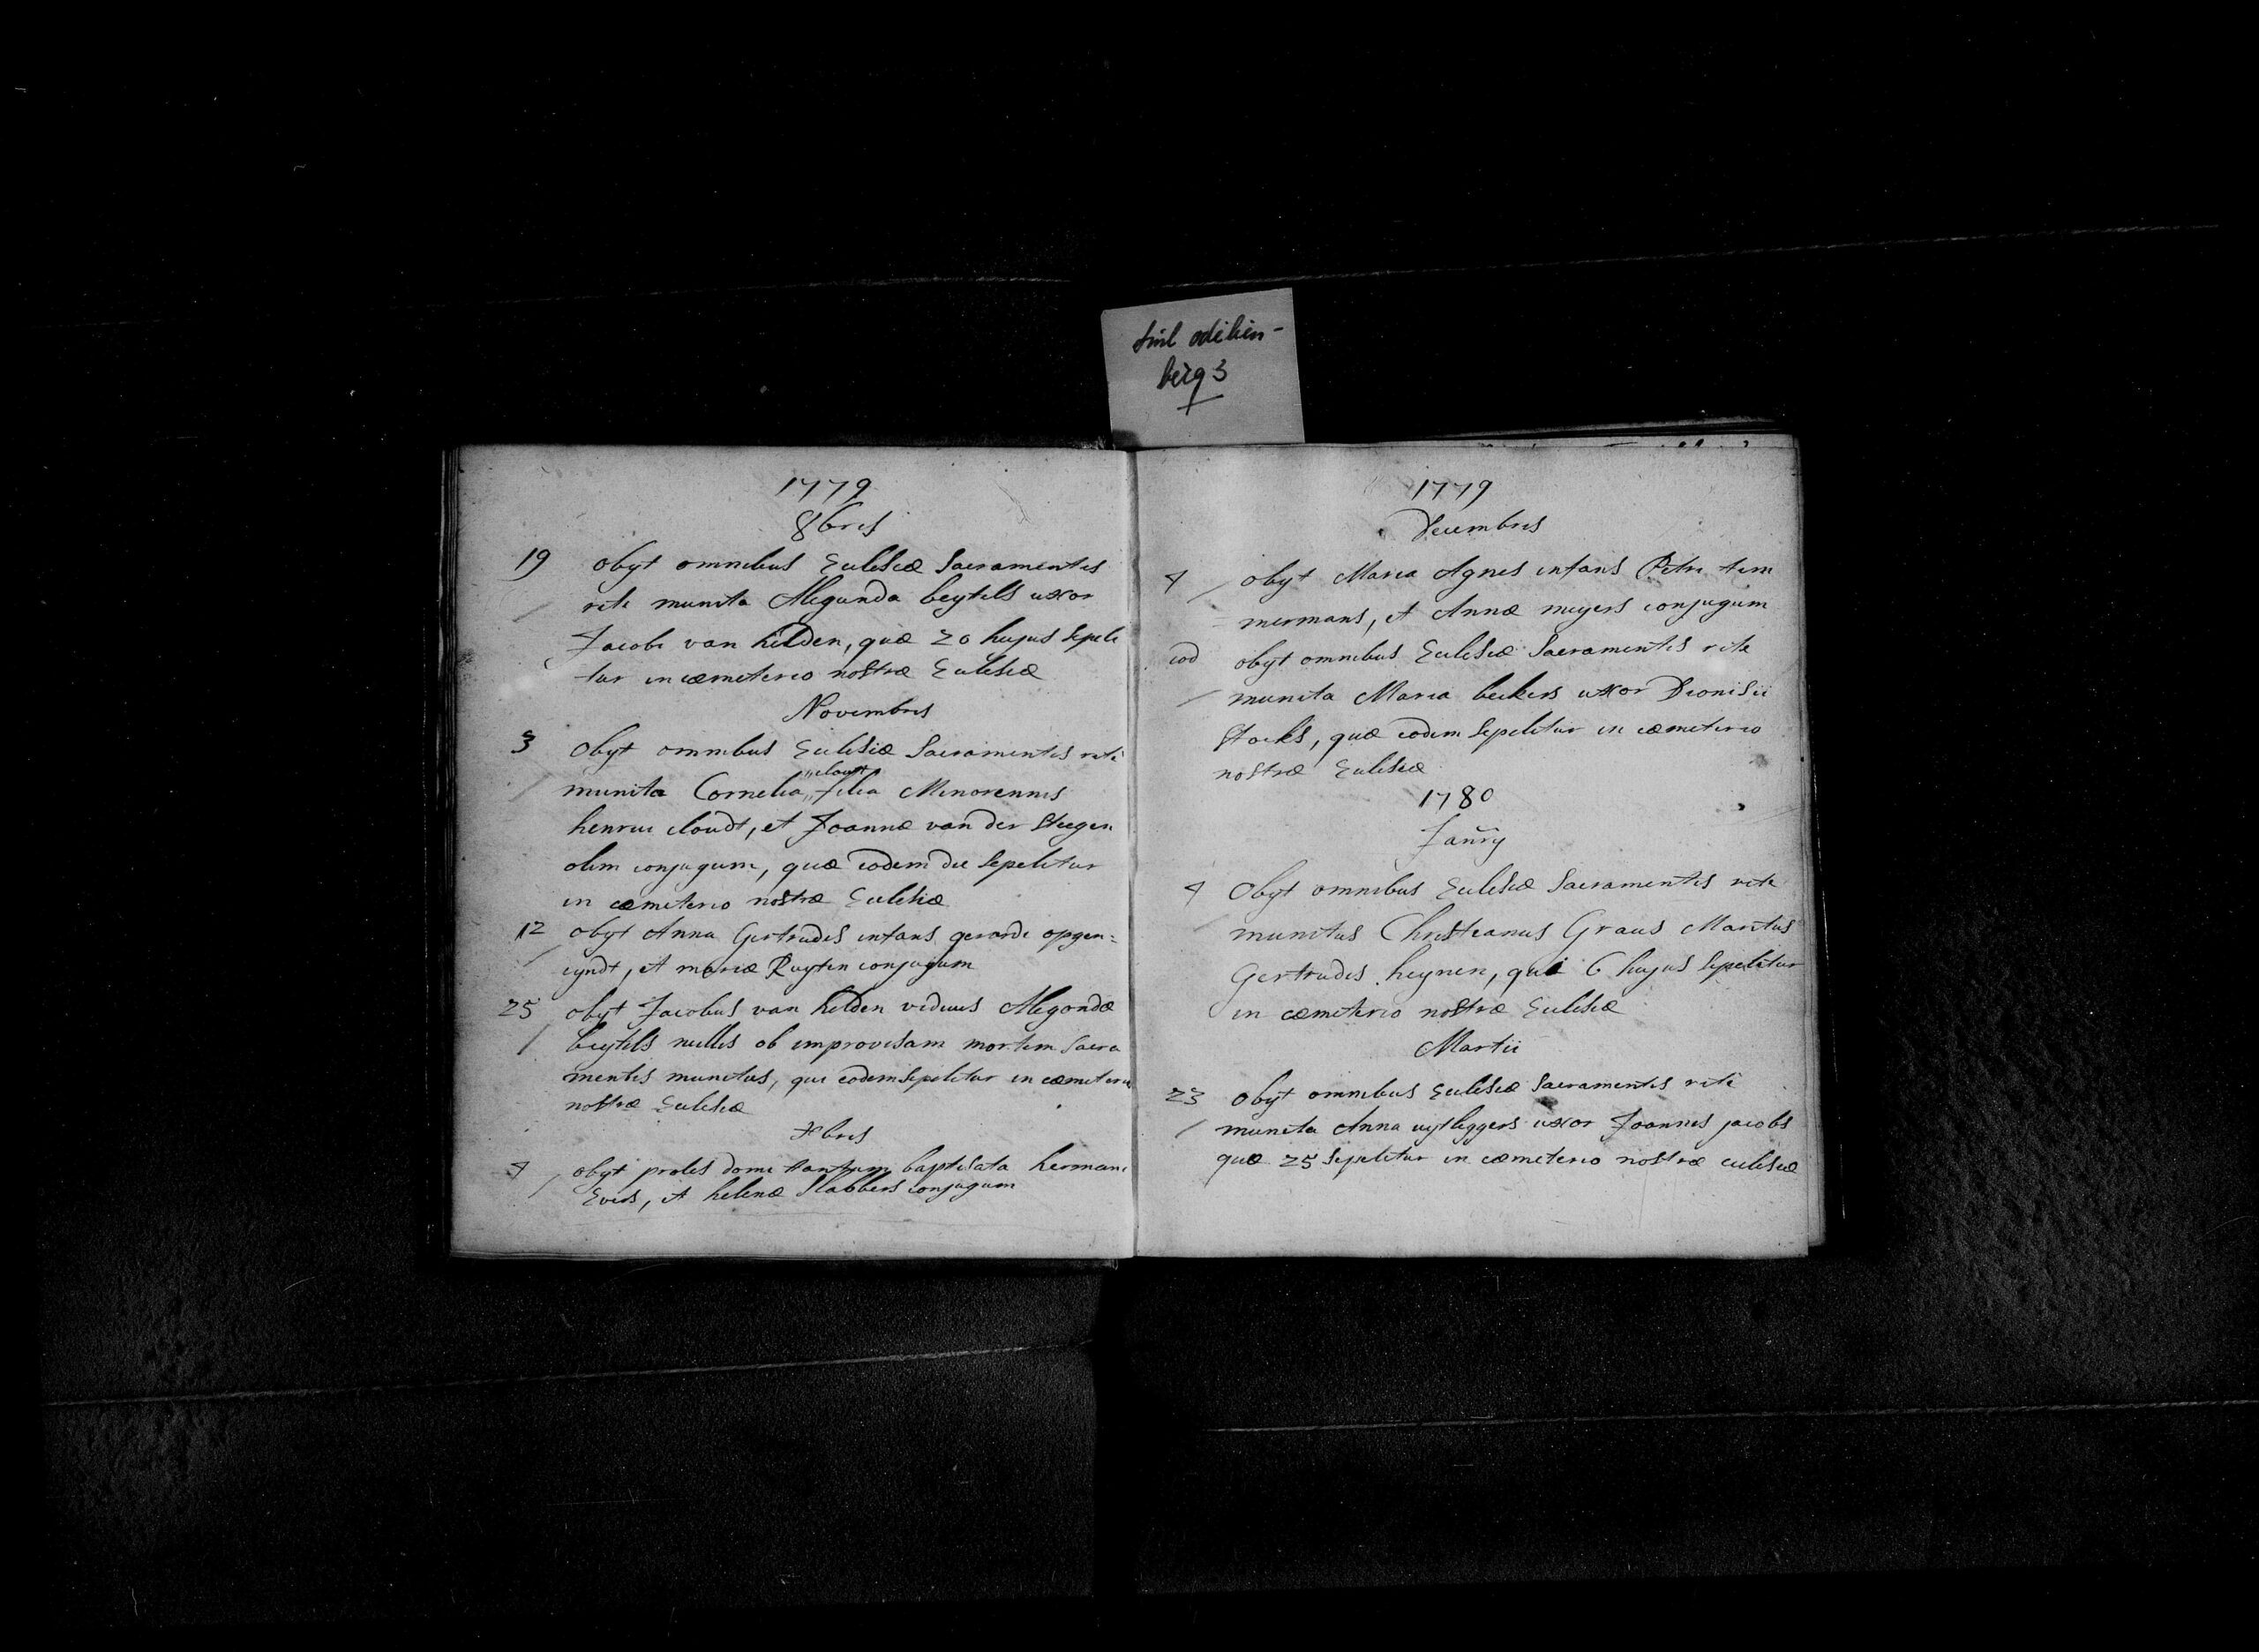 sint odiliën-
berg 3
†
1779
8bris
19 obyt omnibus Ecclesiæ Sacramentis
rite munita Alegunda beytels uxor
Jacobi van helden, quæ 20 hujus sepeli
tur in cæmeterio nostræ Ecclesiæ
Novembris
3 Obyt omnibus Ecclesiæ Sacramentis rite
cloudt
munita Cornelia filia Minorennis
henrici cloudt, et Joannæ van der Steegen
olim conjugum, quæ eodem die sepelitur
in cæmeterio nostræ Ecclesiæ
12 obyt Anna Gertrudis infans gerardi opgen=
eyndt, et mariæ Ruyten conjugum
25 obyt Jacobus van helden viduus Alegondæ
beytels nullis ob improvisam mortem sacra
mentis munitus, qui eodem sepelitur in cæmeterio
nostræ Ecclesiæ
Xbris
4 obyt proles domi tantum baptisata hermani
Evers, et helenæ Slabbers conjugum
1779
Decembris
4 obyt Maria Agnes infans Petri tim
mermans, et Annæ meyers conjugum
eod obyt omnibus Ecclesiæ Sacramentis rite
munita Maria beckers uxor Dionisii
Stocks, quæ eodem sepelitur in cæmeterio
nostræ Ecclesiæ
1780
Janry
4 Obyt omnibus Ecclesiæ Sacramentis rite
munitus Christianus Graus Maritus
Gertrudis heynen, qui 6 hujus sepelitur
in cæmeterio nostræ Ecclesiæ
Martii
23 obyt omnibus Ecclesiæ Sacramentis rite
munita Anna uytleggers uxor Joannis jacobs
quæ 25 sepelitur in cæmeterio nostræ ecclesiæ